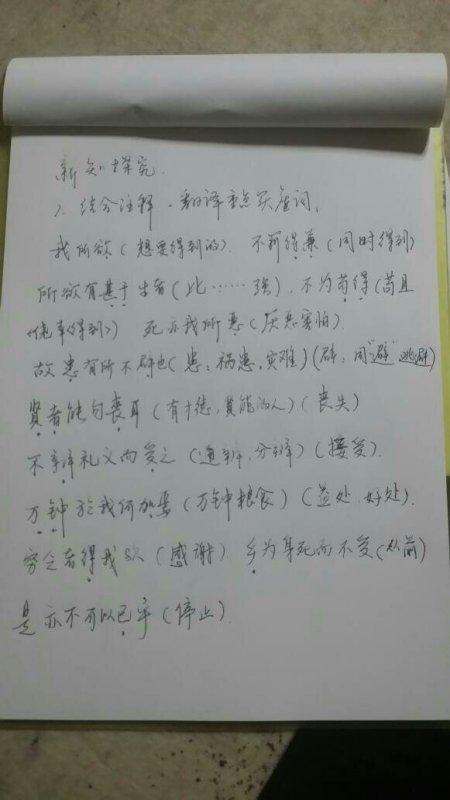 新知探究.
1. 结合注释,翻译重点实虚词,
我所欲(想要得到的). 不可得兼(同时得到)
所欲有甚于生者(比……强). 不为苟得(苟且
<侥幸得到>) 死亦我所恶(厌恶害怕)
故患有所不辟也(患:祸患,灾难)(辟:同“避”逃避)
贤者能勿丧耳(有才德,贤能的人)(丧失)
不辩礼义而受之(通辨,分辨)(接受).
万钟於我何加焉(万钟粮食)(益处,好处).
穷乏者得我欤(感谢) 乡为身死而不受(从前)
是亦不可以已乎(停止).